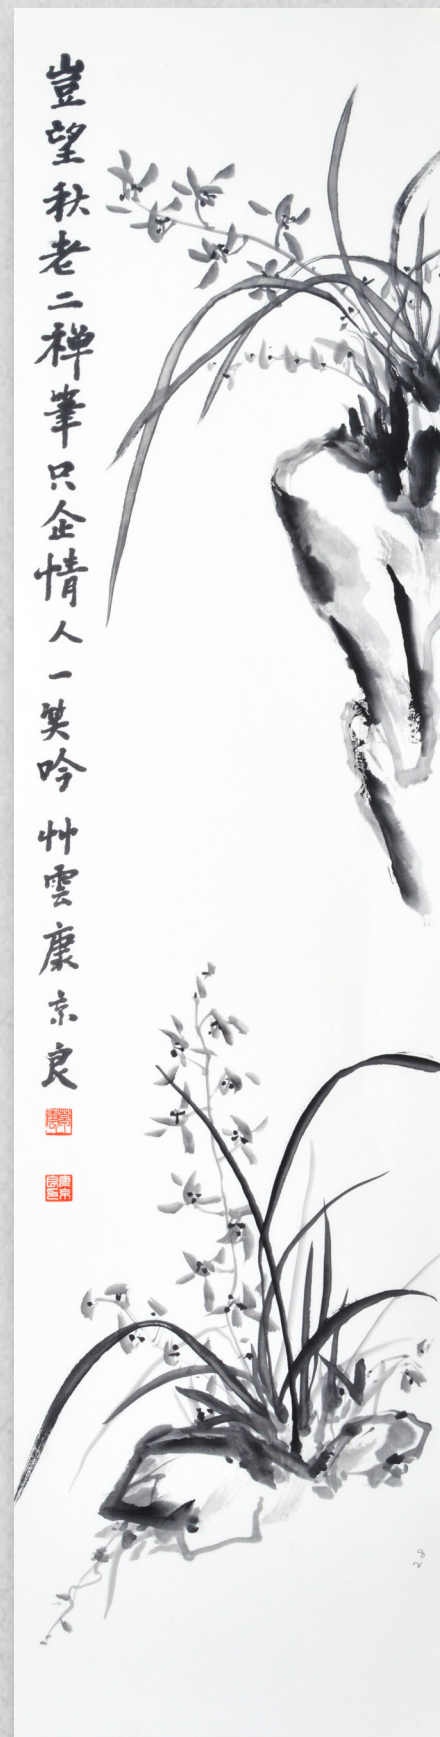 豈望秋老二禅筆只企情人一笑吟 艸雲康京良
康京良印